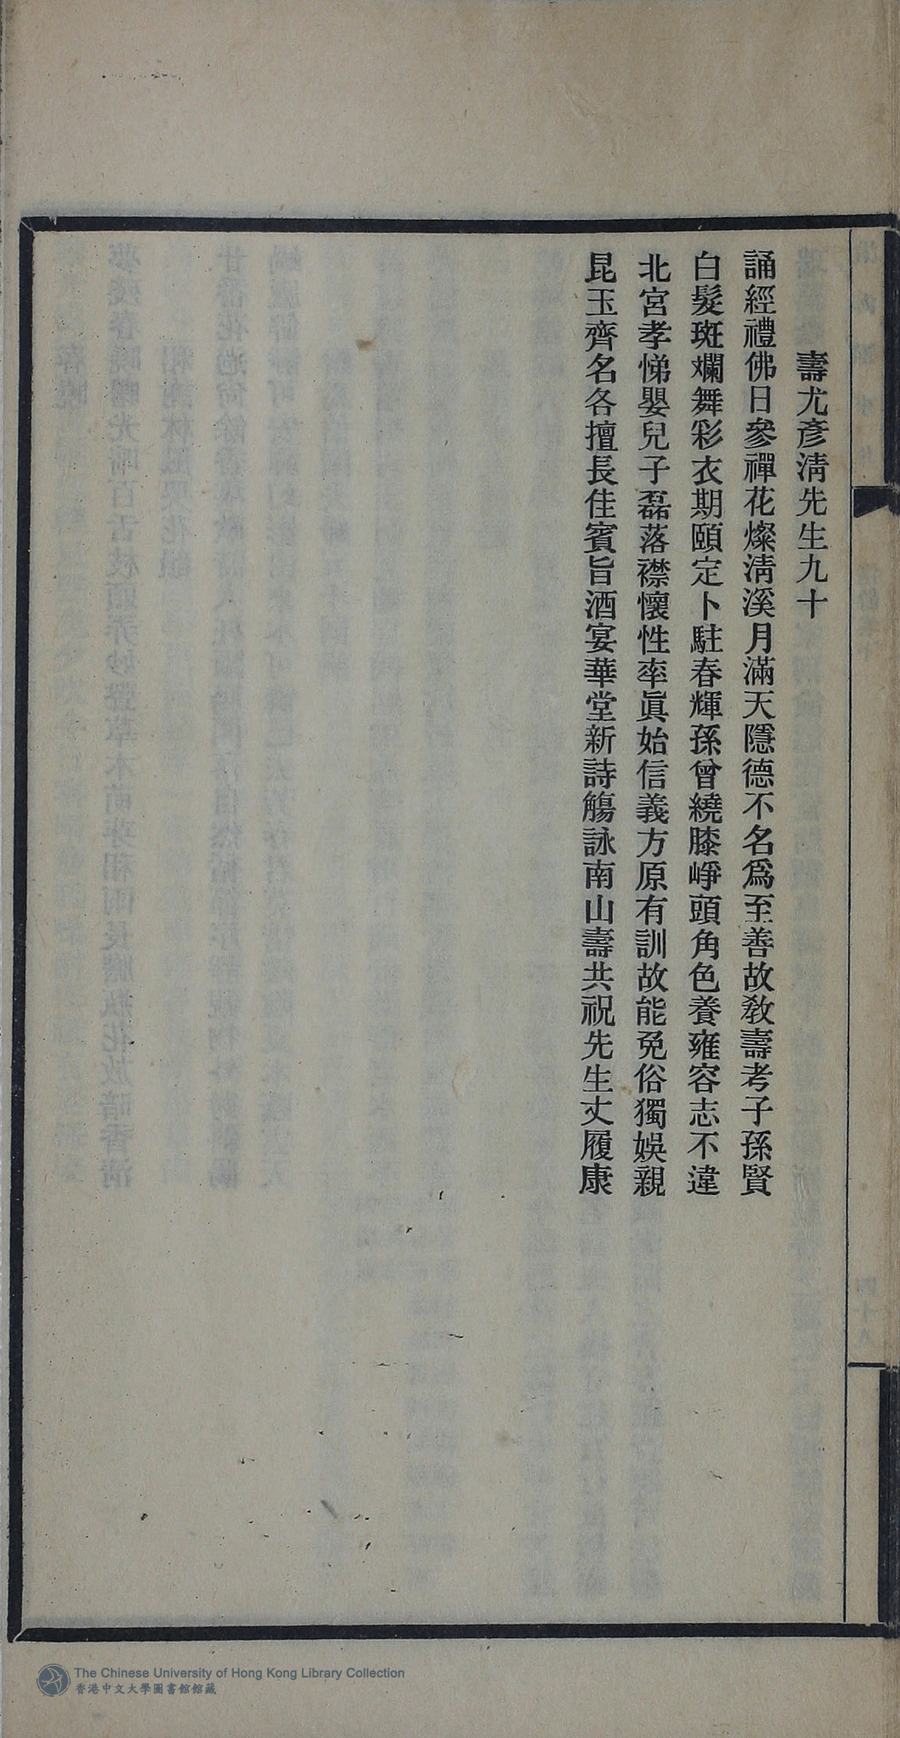 壽尤彥淸先生九十
誦經禮佛日參禪花燦淸溪月滿天隱德不名爲至善故敎壽考子孫賢
白髮斑斕舞彩衣期頤定卜駐春輝孫曾繞膝崢頭角色養雍容志不違
北宮孝悌嬰兒子磊落襟懷性率眞始信義方原有訓故能免俗獨娛親
昆玉齊名各擅長佳賓旨酒宴華堂新詩觴詠南山壽共祝先生丈履康
The Chinese University of Hong Kong Library Collection
香港中文大學圖書館館藏